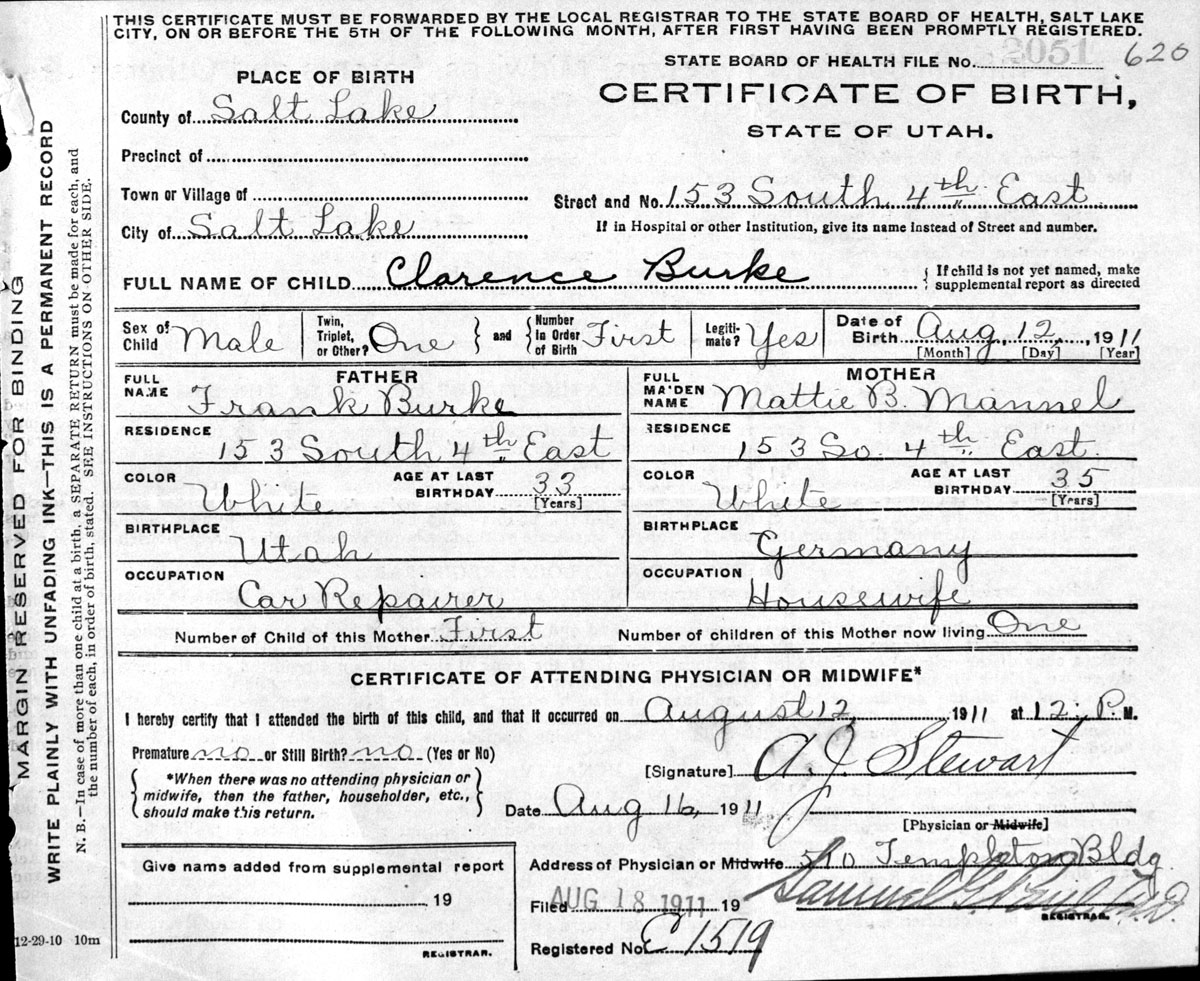 THIS CERTIFICATE MUST BE FORWARDED BY THE LOCAL REGISTRAR TO THE STATE BOARD OF HEALTH, SALT LAKE
CITY, ON OR BEFORE THE 5TH OF THE FOLLOWING MONTH, AFTER FIRST HAVING BEEN PROMPTLY REGISTERED.
STATE BOARD OF HEALTH FILE No. 2051 620
PLACE OF BIRTH
CERTIFICATE OF BIRTH,
STATE OF UTAH.
County of Salt Lake
Precinct of
Town or Village of
Street and No. 153 South, 4th East
City of Salt Lake
If in Hospital or other Institution, give its name instead of Street and number.
FULL NAME OF CHILD Clarence Burke
{ If child is not yet named, make
supplemental report as directed
Sex of Child Male
Twin, Triplet, or Other? One } and { Number in Order of Birth First
Legiti-mate? Yes
Date of Birth Aug, 12, 1911
[Month] [Day] [Year]
FATHER
FULL NAME Frank Burke
MOTHER
FULL MAIDEN NAME Mattie B. Mannel
RESIDENCE 153 South 4th East
RESIDENCE 153 So. 4th East.
COLOR White
AGE AT LAST BIRTHDAY 33 [Years]
COLOR White
AGE AT LAST BIRTHDAY 35 [Years]
BIRTHPLACE Utah
BIRTHPLACE Germany
OCCUPATION Car Repairer
OCCUPATION Housewife
Number of Child of this Mother First
Number of children of this Mother now living One
CERTIFICATE OF ATTENDING PHYSICIAN OR MIDWIFE*
I hereby certify that I attended the birth of this child, and that it occurred on August 12, 1911 at 12: P. M.
Premature no or Still Birth? no (Yes or No)
[Signature] A. J. Stewart
{ *When there was no attending physician or
midwife, then the father, householder, etc.,
should make this return. }
Date Aug 16, 1911
[Physician or Midwife]
Give name added from supplemental report
19
REGISTRAR.
Address of Physician or Midwife 510 Templeton Bldg
Filed AUG 18 1911 19
Samuel G. Paul M.D.
REGISTRAR.
Registered No. E 1519
12-29-10 10m
MARGIN RESERVED FOR BINDING
WRITE PLAINLY WITH UNFADING INK—THIS IS A PERMANENT RECORD
N. B.—In case of more than one child at a birth, a SEPARATE RETURN must be made for each, and
the number of each, in order of birth, stated. SEE INSTRUCTIONS ON OTHER SIDE.